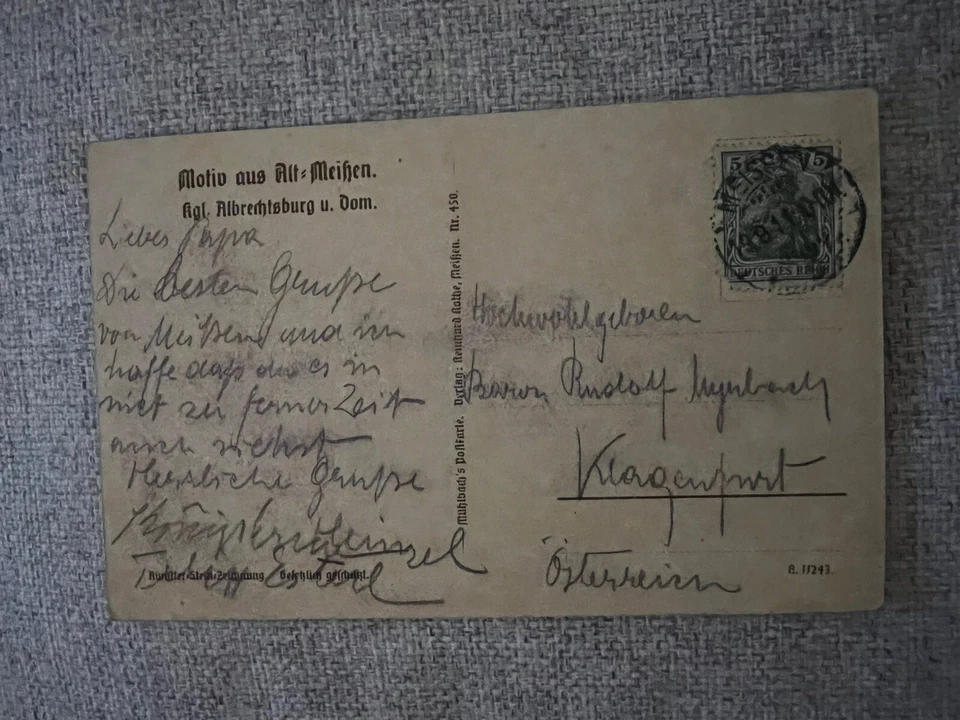 Motiv aus Alt-Meißen.
Kgl. Albrechtsburg u. Dom.
Liebes Papa
Die besten Grüße
von Meißen und ich
hoffe daß du es in
nict zu ferner Zeit
auch siehst
Herzliche Grüße
Künstler-Stein-Zeichnung. Gesetzlich geschützt.
Mühlbach's Postkarte. Verlag: Reinhard Rothe, Meißen. Nr. 450.
5 5
MEISSEN
DEUTSCHES REICH
Hochwohlgeboren
Baron Rudolf Myrbach
Klagenfurt
Österreich
A. 11243.